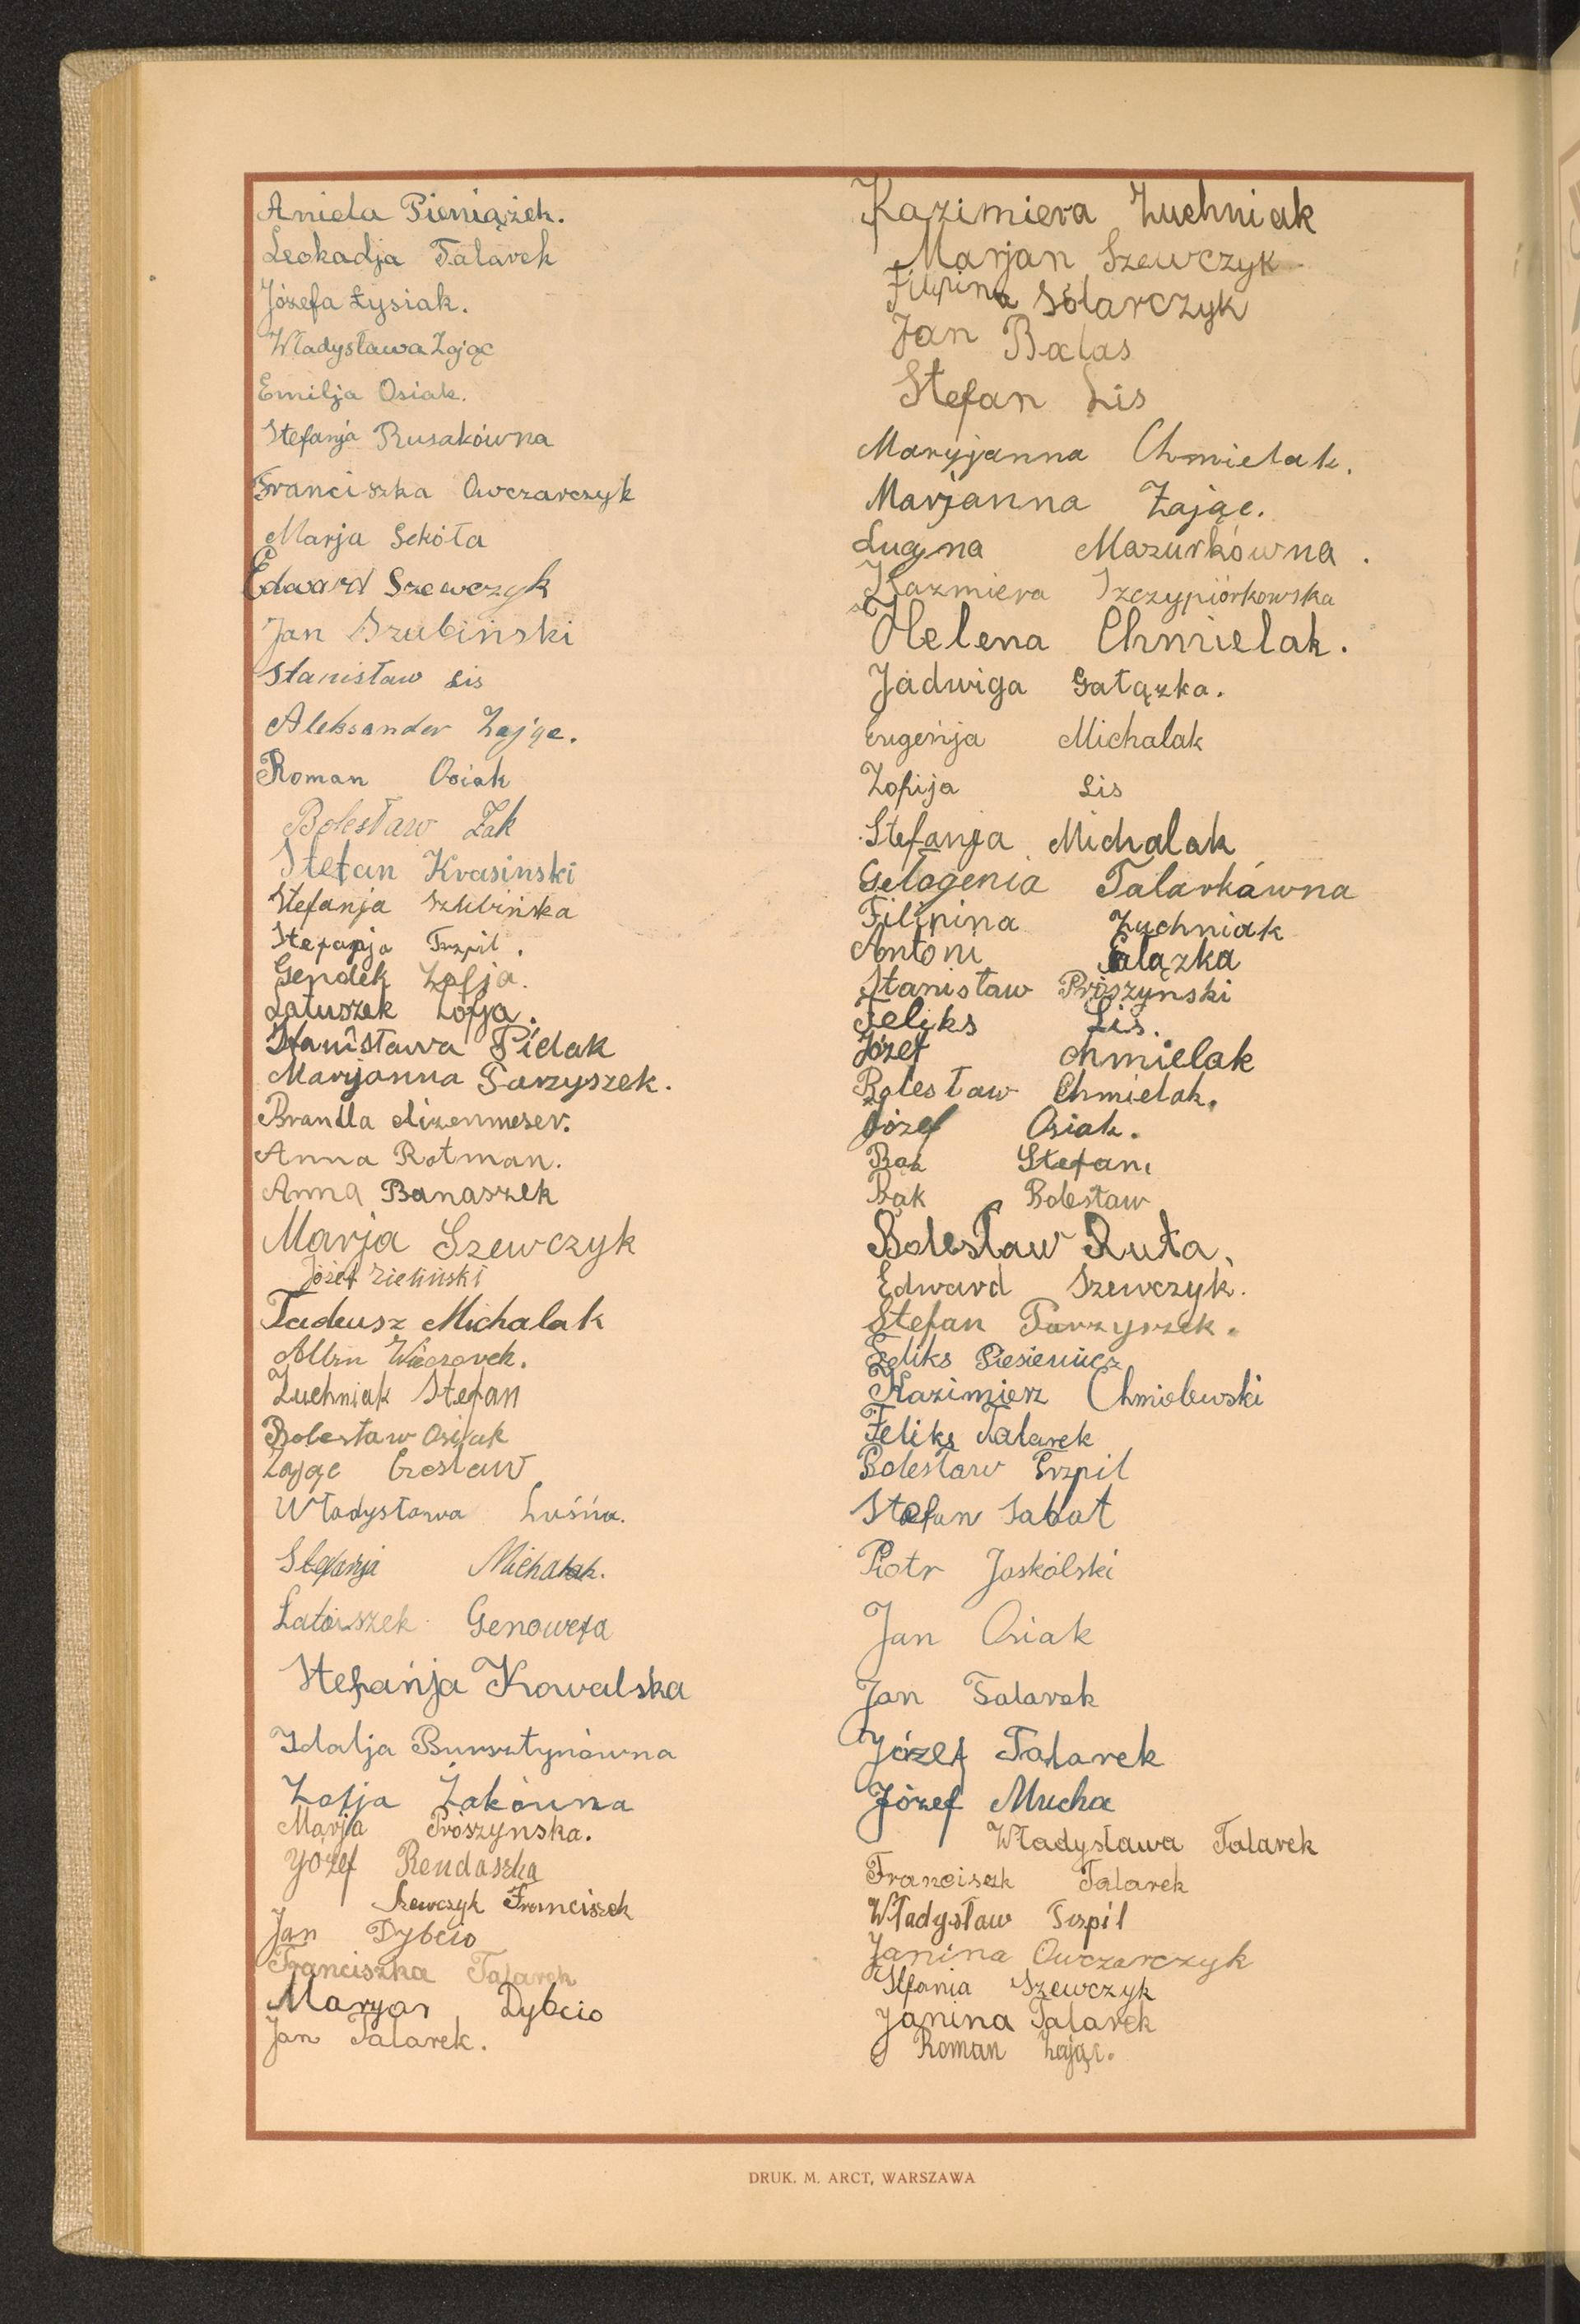 Aniela Pieniążek.
Leokadja Talarek
Józefa Łysiak.
Władysława Zając
Emilja Osiak.
Stefanja Rusakówna
Franciszka Owczarczyk
Marja Sekóła
Edward Szewczyk
Jan Szubiński
Stanisław Lis
Aleksander Zając.
Roman Osiak
Bolesław Żak
Stefan Krasinski
Stefanja Szubińska
Stefanja Trzpil.
Gendek Zofja.
Latuszek Zofja.
Stanisława Pielak
Maryjanna Parzyszek.
Brandla
Anna Rotman.
Anna Banaszek
Marja Szewczyk
Józef Zieliński
Tadeusz Michalak
Wieczorek.
Zuchniak Stefan
Bolesław Osijak
Zając Czesław
Władysława Luśńa.
Stefanja Michalak.
Latoszek Genowefa
Stefańja Kowalska
Idalja Bursztynówna
Zofja Żakówna
Marja Prószynska.
Józef Rendaszka
Szewczyk Franciszek
Jan Dybcio
Franciszka Talarek
Maryan Dybcio
Jan Talarek.
Kazimiera Zuchniak
Marjan Szewczyk
Filipina Sólarczyk
Jan Balas
Stefan Lis
Maryjanna Chmielak.
Marjanna Zając.
Lugina Mazurkówna.
Kazmiera Szczypiórkowska
Helena Chmielak.
Jadwiga Gałązka.
Eugeńja Michalak
Zofija Lis
Stefanja Michalak
Gelogenia Talarkáwna
Filipina Zuchniak
Antoni Galązka
Stanisław Prószynski
Feliks Lis.
Józef Chmielak
Bolesław Chmielak.
Józef Osiak.
Bąk Stefan.
Bąk Bolesław
Bolesław Ruta.
Edward Szewczyk.
Stefan Parzyszek.
Feliks Piesiewicz
Kazimierz Chmielewski
Feliks Talarek
Bolesław Trzpil
Stefan Sabat
Piotr Jaskólski
Jan Osiak
Jan Talarek
Józef Talarek
Józef Mucha
Władysława Talarek
Franciszk Talarek
Władysław Trzpil
Janina Owczarczyk
Stfania Szewczyk
Janina Talarek
Roman Zając.
DRUK. M. ARCT, WARSZAWA